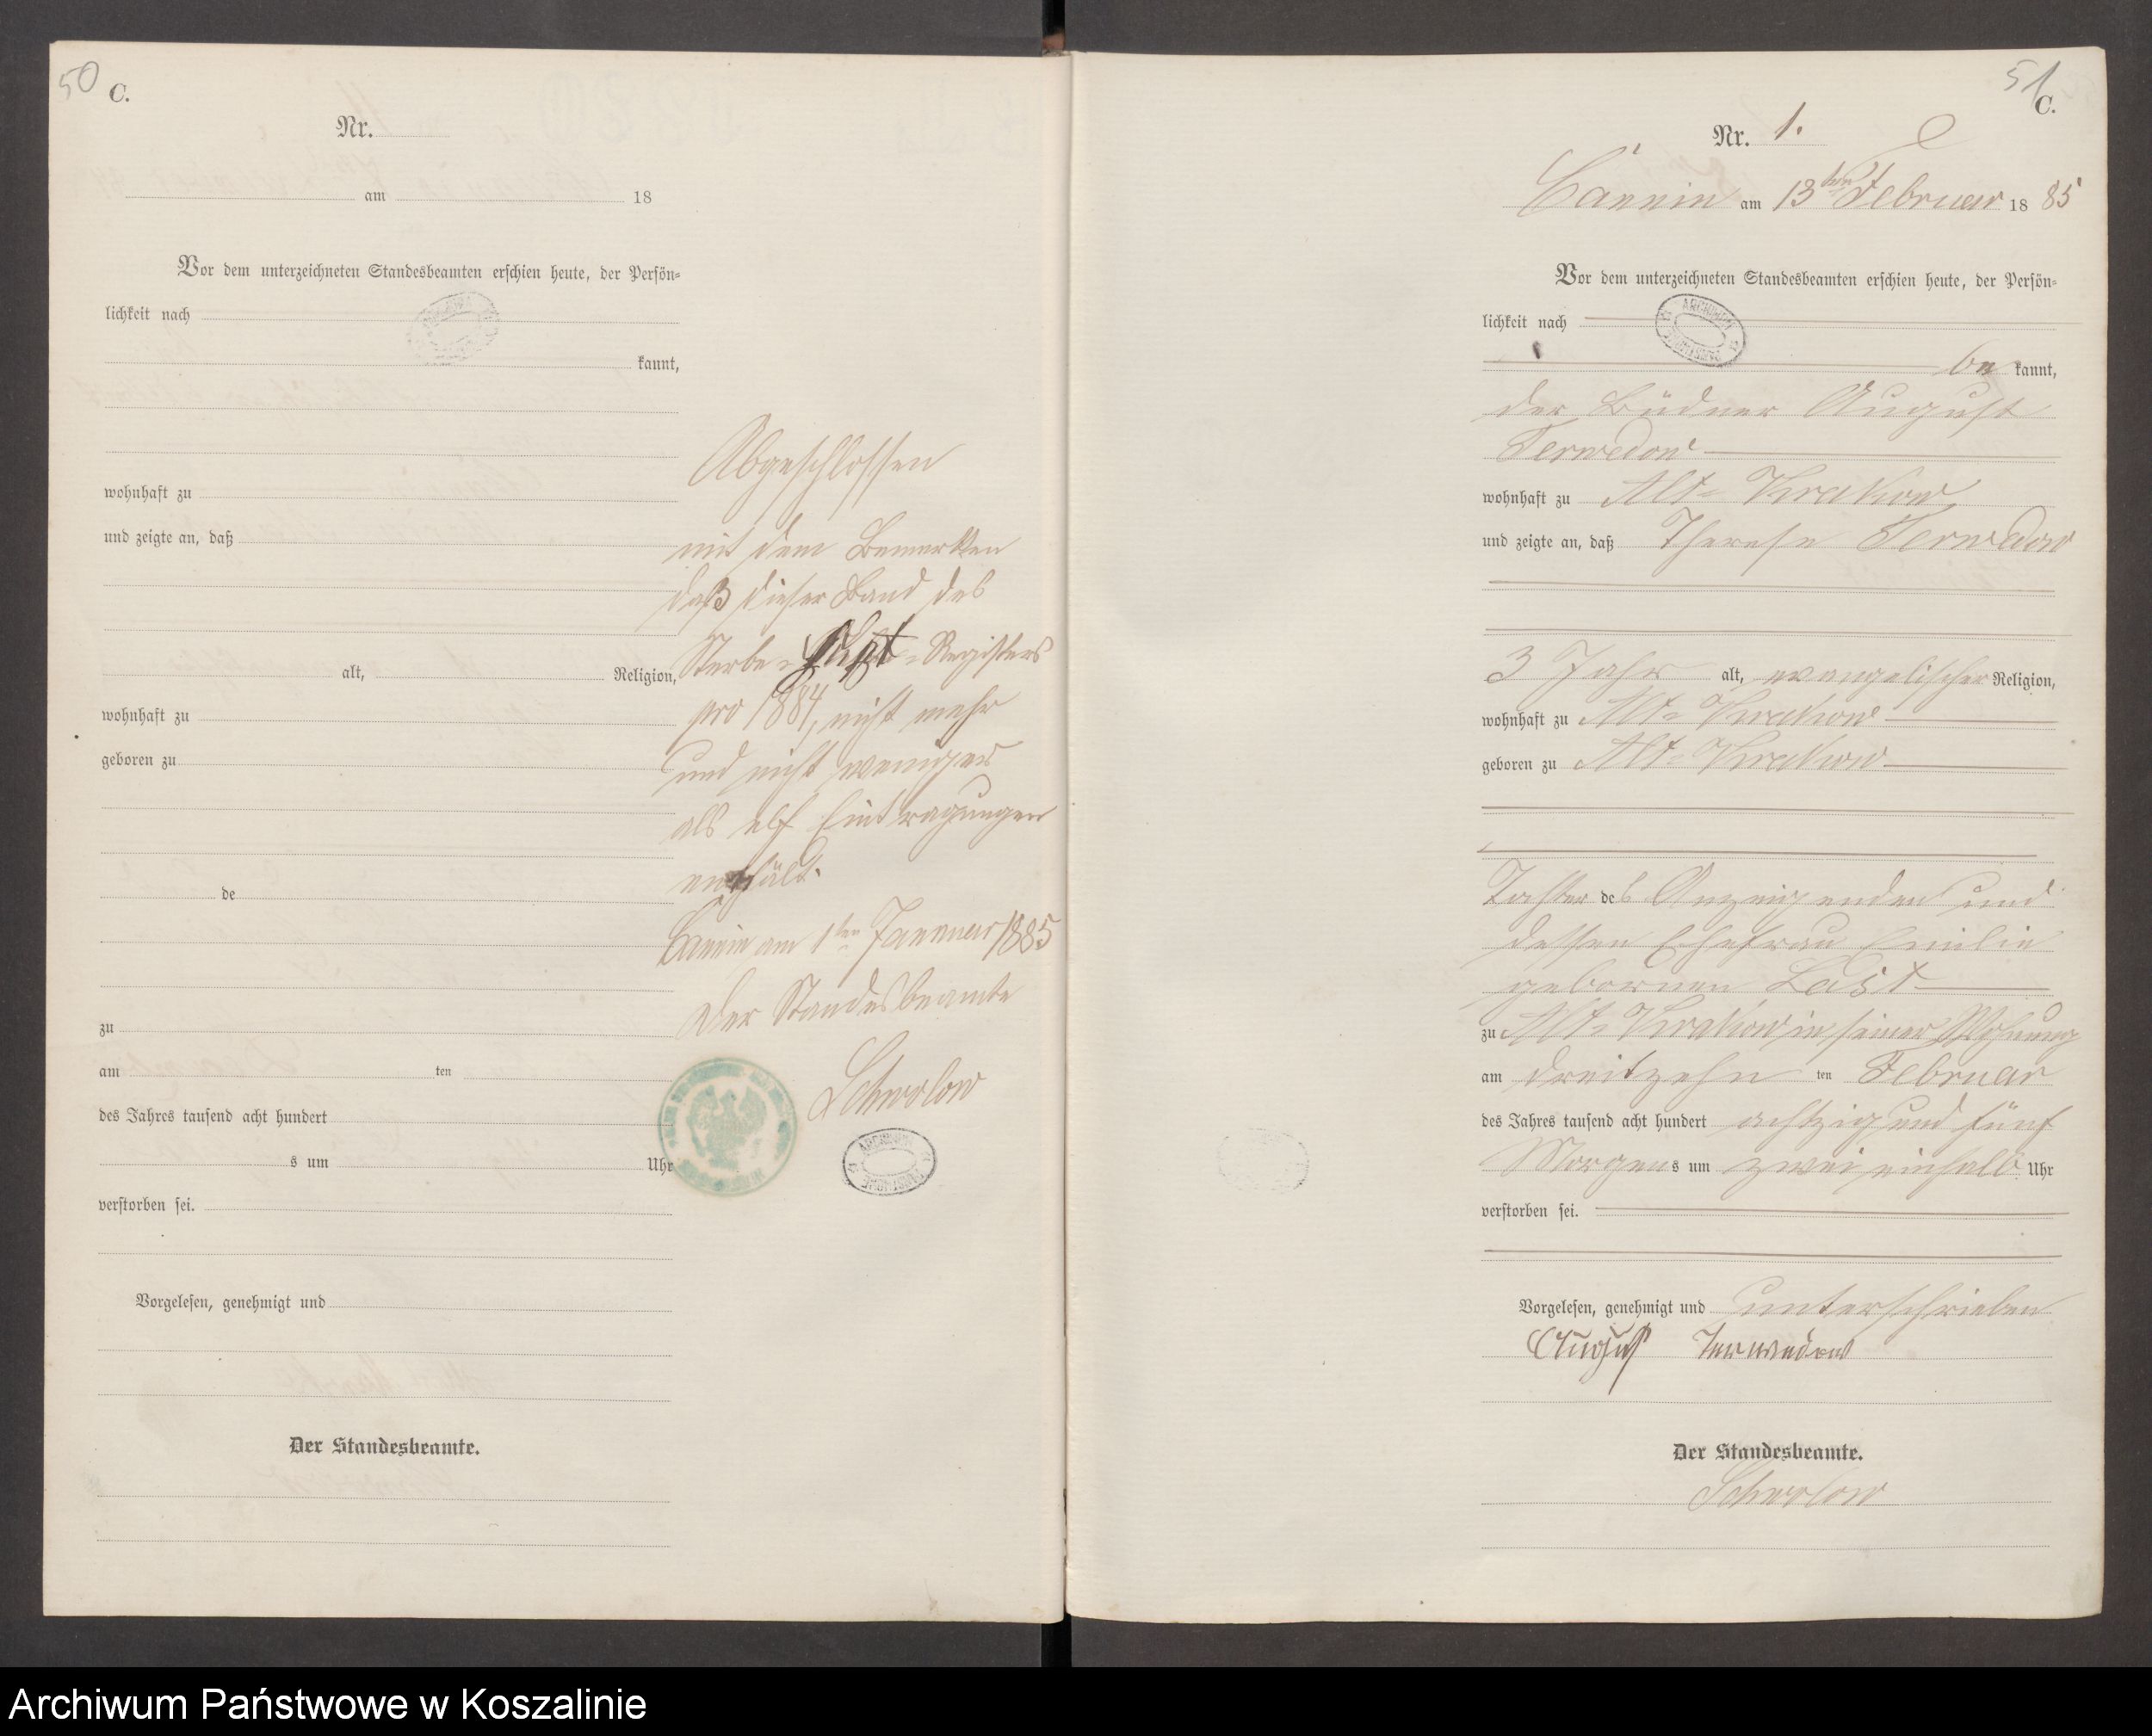 50
C.
Nr.
am 18
Vor dem unterzeichneten Standesbeamten erschien heute, der Persön-
lichkeit nach
kannt,
wohnhaft zu
und zeigte an, daß
alt, Religion,
wohnhaft zu
geboren zu
de
zu
am ten
des Jahres tausend acht hundert
s um Uhr
verstorben sei.
Vorgelesen, genehmigt und
Der Standesbeamte.
Abgeschlossen
mit dem Bemerken
daß dieser Band des
Sterbe - Registers
pro 1884, nicht mehr
und nicht weniger
als elf Eintragungen
enthält.
Cannin am 1ten Januar 1885
Der Standesbeamte
Schwolow
ARCHIWUM
51
C.
Nr. 1.
Cannin am 13ten Februar 1885
Vor dem unterzeichneten Standesbeamten erschien heute, der Persön-
lichkeit nach
ARCHIWUM
be kannt,
der Büdner August
Terwedow
wohnhaft zu Alt-Krakow
und zeigte an, daß Therese Terwedow
3 Jahr alt, evangelischer Religion,
wohnhaft zu Alt-Krakow
geboren zu Alt-Krakow
Tochter des Anzeigenden und
dessen Ehefrau Emilie
gebornen Last
zu Alt-Krakow in seiner Wohnung
am dreitzehn ten Februar
des Jahres tausend acht hundert achtzig und fünf
Morgens um zwei einhalb Uhr
verstorben sei.
Vorgelesen, genehmigt und unterschrieben
August Terwedow
Der Standesbeamte.
Schwolow
Archiwum Państwowe w Koszalinie